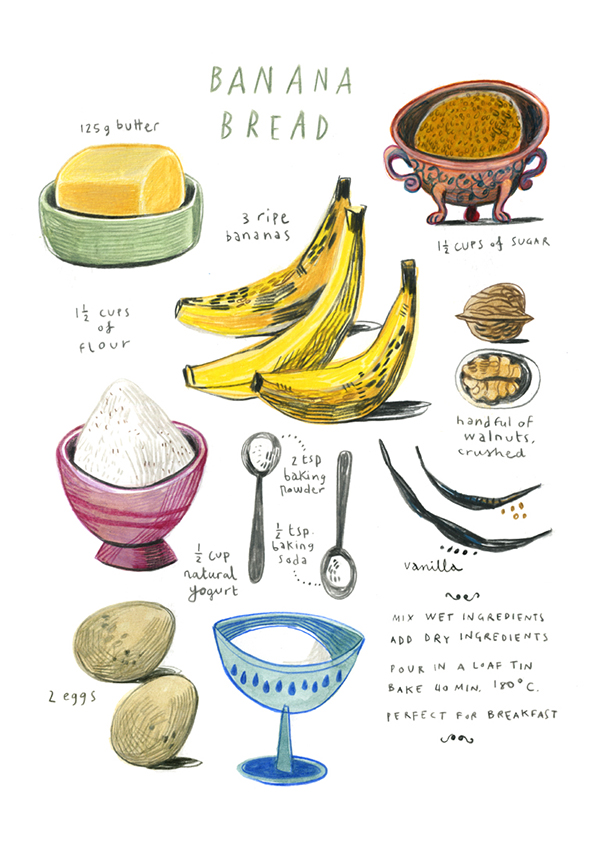 BANANA
BREAD
125g butter
3 ripe
bananas
1½ CUPS of SUGAR
1½ CUPS
of
FLOUR
handful of
walnuts,
crushed
2 tsp
baking
powder
½ tsp.
baking
soda
vanilla
½ cup
natural
yogurt
2 eggs
MIX WET INGREDIENTS
ADD DRY INGREDIENTS
POUR IN A LOAF TIN
BAKE 40 MIN. 180°C.
PERFECT FOR BREAKFAST